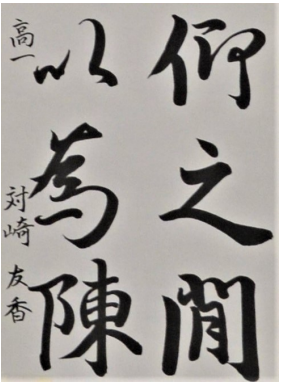 仰之閒
以為陳
高一 対崎 友香